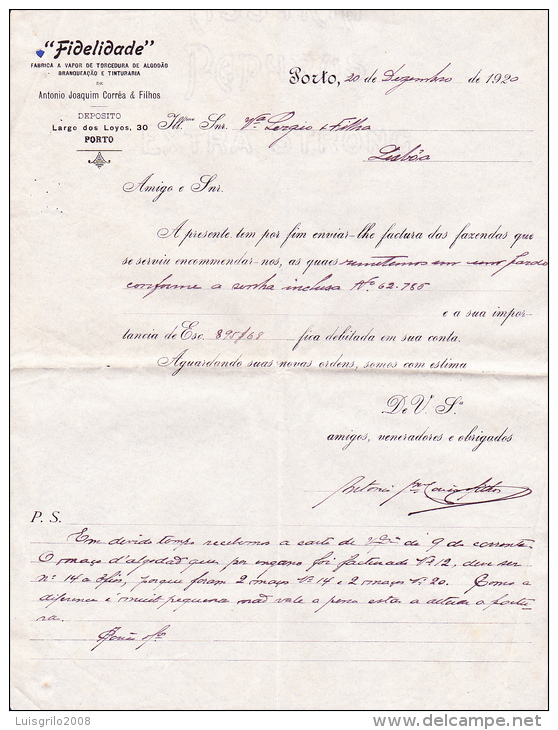 "Fidelidade"
FABRICA A VAPOR DE TORCEDURA DE ALGODÃO
BRANQUEAÇÃO E TINTURARIA
DE
Antonio Joaquim Corrêa & Filhos
DEPOSITO
Largo dos Loyos, 30
PORTO
Porto, 20 de Dezembro de 1920
Ill.mo Snr. Va Sergio & Filha
Lisbôa
Amigo e Snr.
A presente tem por fim enviar-lhe factura das fazendas que
se serviu encommendar-nos, as quaes remettemos em um fardo
conforme a senha inclusa No 62.786
e a sua impor-
tancia de Esc. 895$68 fica debitada em sua conta.
Aguardando suas novas ordens, somos com estima
De V. S.a
amigos, veneradores e obrigados
Antonio
P. S.
Em devido tempo recebemos a carta de de 9 do corrente
O maço d'algodão que por engano foi facturado 12, deve ser
nº 14 a fios, porque foram 2 maços nº 14 e 2 maços nº 20. Como a
diferença é muit pequena não vale a pena estar a alterar a factu-
ra.
Luisgrilo2008
www.delcampe.net